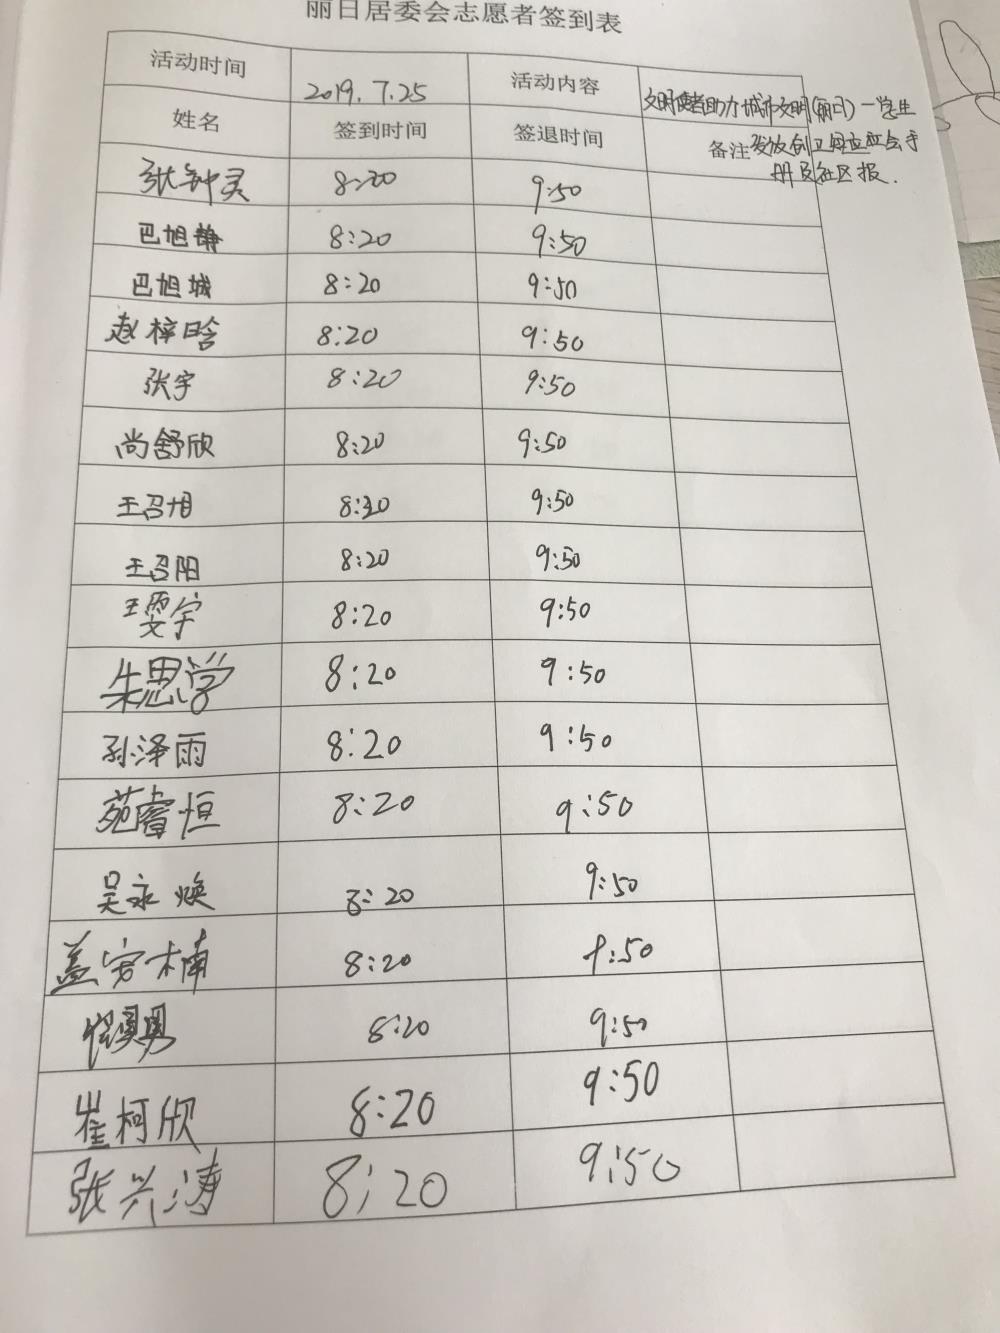 丽日居委会志愿者签到表
活动时间 2019.7.25 活动内容 文明使者助力城市文明(丽日)一学生
姓名 签到时间 签退时间 备注 发放创卫应知应会手
册及社区报.
张钟灵 8:20 9:50
巴旭静 8:20 9:50
巴旭城 8:20 9:50
赵梓晗 8:20 9:50
张宇 8:20 9:50
尚舒欣 8:20 9:50
王召旭 8:20 9:50
王召阳 8:20 9:50
王雯宇 8:20 9:50
朱思学 8:20 9:50
孙泽雨 8:20 9:50
苑睿恒 8:20 9:50
吴永焕 8:20 9:50
盖安楠 8:20 9:50
8:20 9:50
崔柯欣 8:20 9:50
张兴涛 8:20 9:50